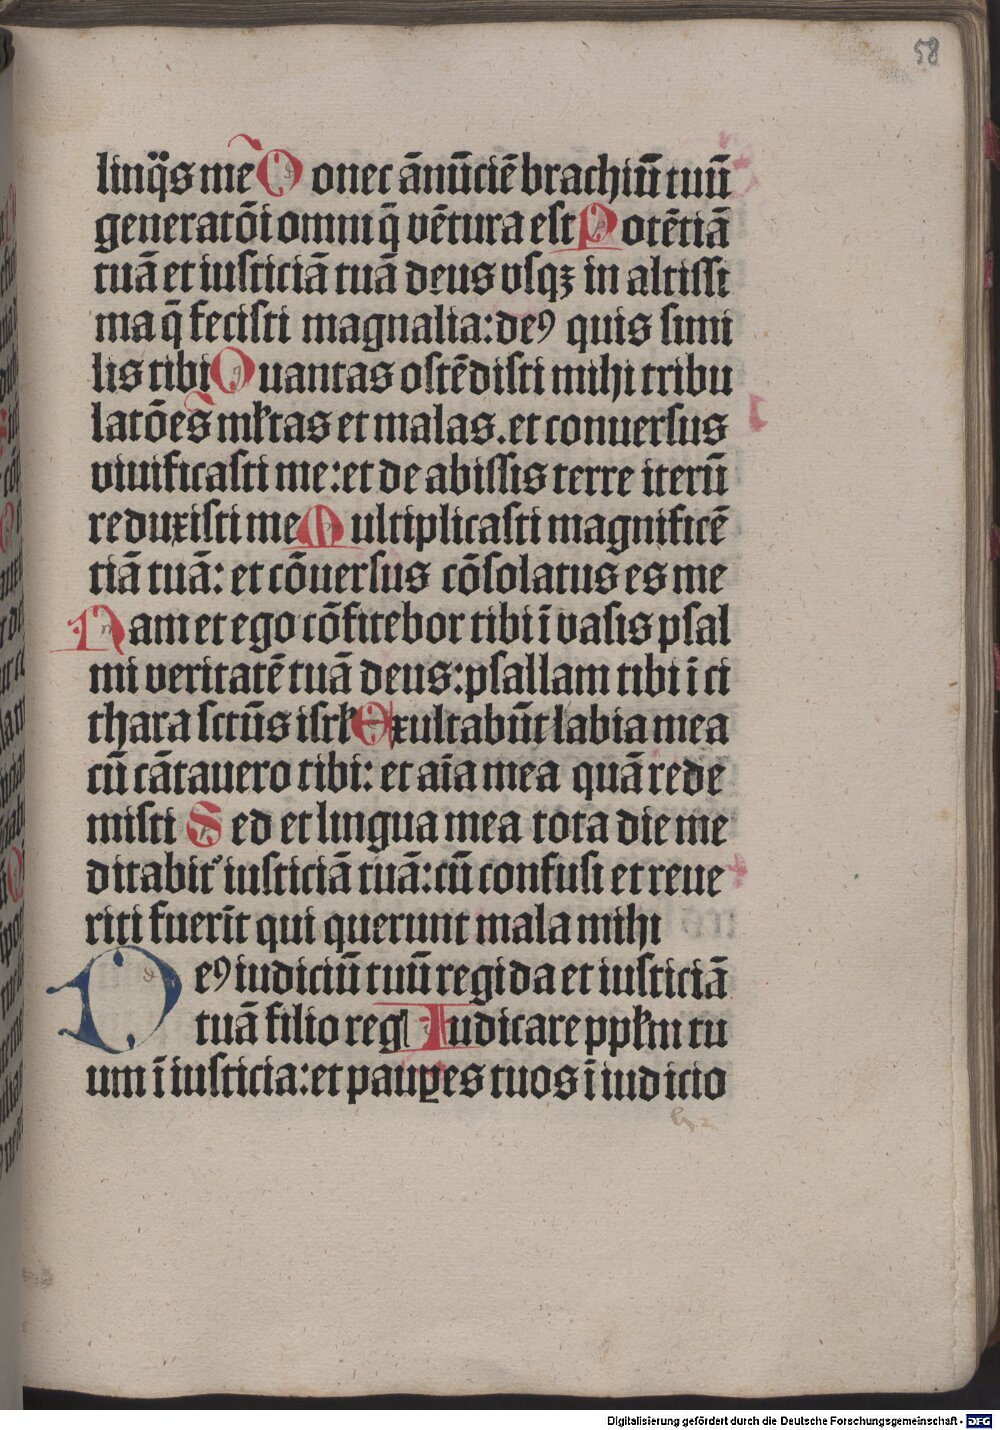 58
linq̃s me Donec ãnũciẽ brachiũ tuũ
generatõi omni q̃ vẽtura est Potẽtiã
tuã et iusticiã tuã deus vsqꝫ in altissi
ma q̃ fecisti magnalia: deꝰ quis simi
lis tibi Quantas ostẽdisti mihi tribu
latões ml̃tas et malas. et conuersus
viuificasti me: et de abissis terre iterũ
reduxisti me Multiplicasti magnificẽ
tiã tuã: et cõuersus cõsolatus es me
Nam et ego cõfitebor tibi ĩ vasis psal
mi veritatẽ tuã deus: psallam tibi ĩ ci
thara sctũs isrl̃ Exultabũt labia mea
cũ cãtauero tibi: et aĩa mea quã rede
misti Sed et lingua mea tota die me
ditabit᷑ iusticiã tuã: cũ confusi et reue
riti fuerĩt qui querunt mala mihi
Deꝰ iudiciũ tuũ regi da et iusticiã
tuã filio regꝭ Iudicare ppl̃m tu
um ĩ iusticia: et paupꝑes tuos ĩ iudicio
Digitalisierung gefördert durch die Deutsche Forschungsgemeinschaft - DFG